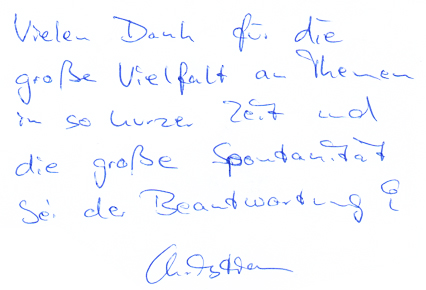 Vielen Dank für die
große Vielfalt an Themen
in so kurzer Zeit und
die große Spontanität
bei der Beantwortung!
Christian